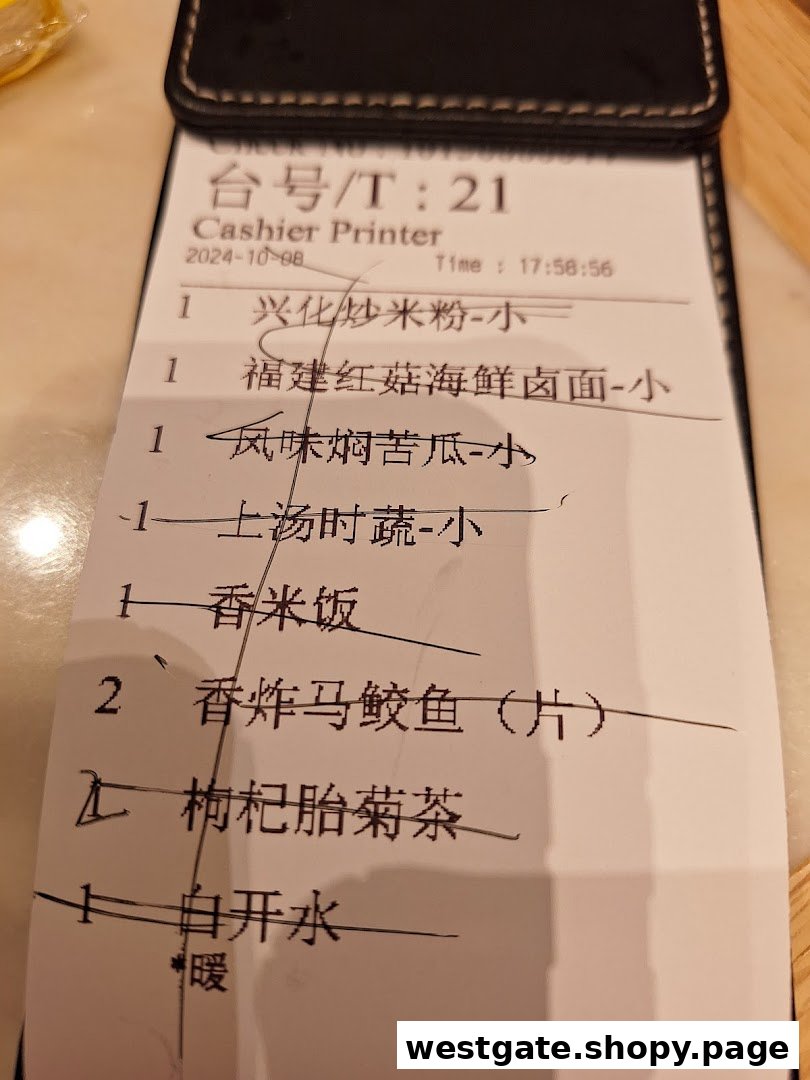 台号/T : 21
Cashier Printer
2024-10-08 Time : 17:58:56
1 兴化炒米粉-小
1 福建红菇海鲜卤面-小
1 风味焖苦瓜-小
1 上汤时蔬-小
1 香米饭
2 香炸马鲛鱼（片）
1 枸杞胎菊茶
1 白开水
暖
westgate.shopy.page